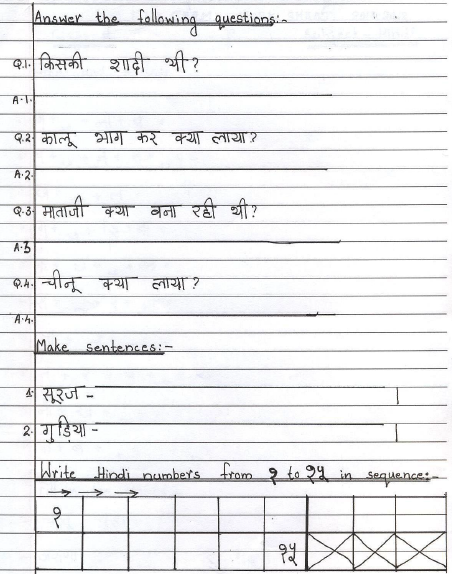 Answer the following questions:-
Q.1. किसकी शादी थी?
A.1.
Q.2. कालू भाग कर क्या लाया?
A.2.
Q.3. माताजी क्या बना रही थी?
A.3
Q.4. चीनू क्या लाया?
A.4.
Make sentences:-
1. सूरज -
2. गुड़िया -
Write Hindi numbers from १ to १५ in sequence:-
१
१५